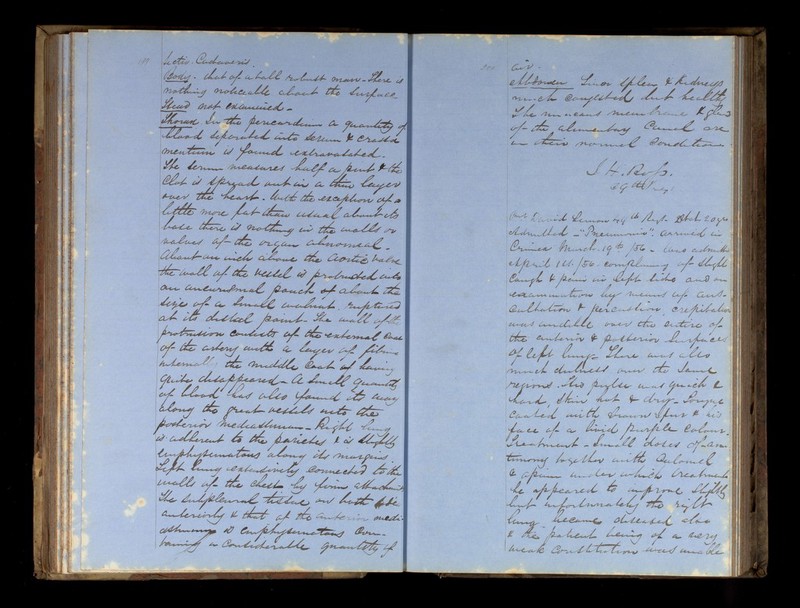 Sectio Cadaveris.
Body - that of a tall robust man - There is
nothing noticeable about the surface
Head not examined -
Thorax In the pericardium a quantity of
blood separated into serum & crassa
mentum is found extravasated.
The serum measures half a pint & the
clot is spread out in a thin layer
over the heart. With the exception of a
little more fat than usual about its
base there is nothing in the walls or
valves of the organ abnormal.
About an inch above the aortic valve
the wall of the vessel is protruded into
an aneurismal pouch of about the
size of a small walnut, ruptured
at its distal point. The wall of the
protrusion consists of the external coat
of the artery with a layer of fibrine
internally, the middle coat having
quite disappeared - A small quantity
of blood has also found its way
along the great vessels into the
posterior mediastinum - Right lung
is adherent to the parietes & is slightly
emphysematous along its margins.
Left lung extensively connected to the
walls of the chest by firm
The subpleural tissue on both
anteriorly & that of the anterior medi
astinum is emphysematous con
taining a considerable quantity of
air -
Abdomen Liver spleen & kidneys
much congested but healthy
The mucous membrane &
of the alimentary Canal are
in their normal condition.
29th
David 44th Regt.
Admitted - "Pneumonia". arrived in
Crimea March 19th /56 - was admitted
April 1st /56. complaining of slight
cough & pain in left side and on
examination by means of aus-
cultation & percussion, crepitation
was audible over the entire of
the anterior & posterior surfaces
of left lung - There was also
much dulness over the same
regions. His pulse was quick &
hard, skin hot & dry - Tongue
coated with brown fur & his
face of a livid purple colour.
Treatment - Small doses of an-
timony together with Calomel
& opium under which treatment
he appeared to improve slightly
but unfortunately the right
lung became diseased also
& the patient being of a very
weak constitution was unable